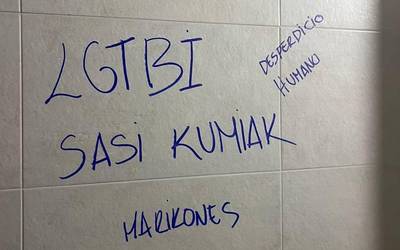 LGTBİ
DESPERDICIO
HUMANO
SASI KUMIAK
MARIKONES